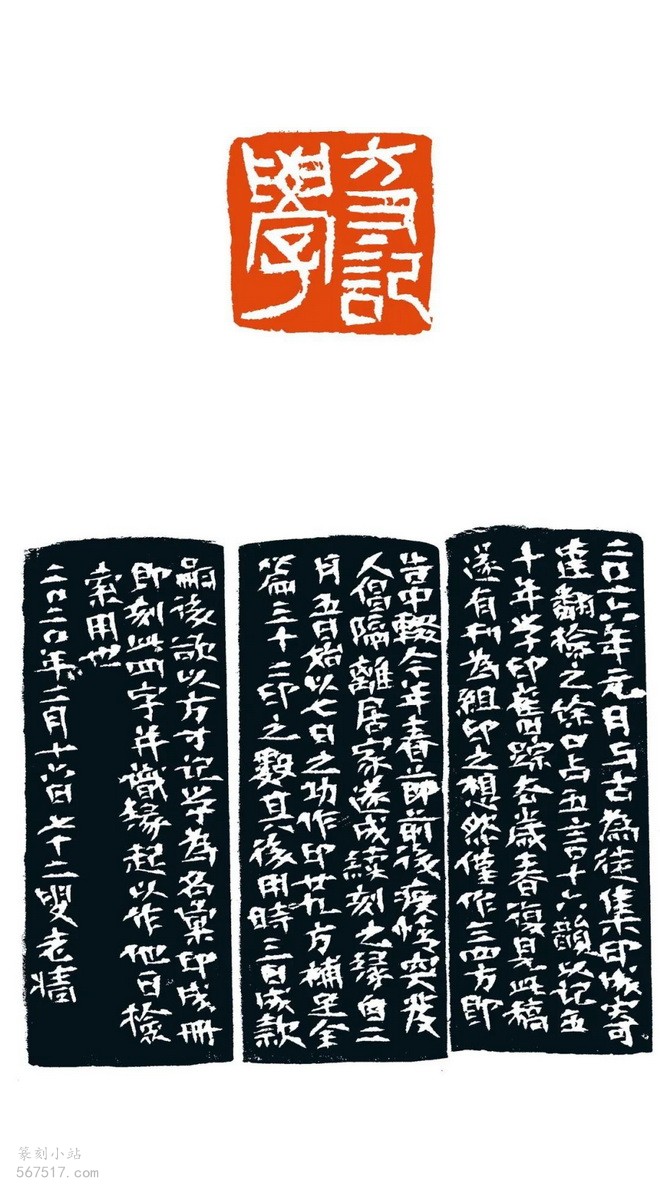 方寸記學
二〇一六年元月与古為徒集印成寄
達翻檢之餘口占五言十六韻以记五
十年学印舊踪去歲春復見此稿
遂有刊為組印之想然僅作三四方即
告中輟今年春節前後疫情突發
人倡隔離居家遂成續刻之缘自二
月五日始以七日之功作印廿九方補足全
篇三十二印之數其後用時三日成款
嗣後欲以方寸记学為名彙印成冊
即刻此四字并識缘起以作他日檢
索用也
二〇二〇年二月十六日七十二叟老墻
篆刻小站
567517.com